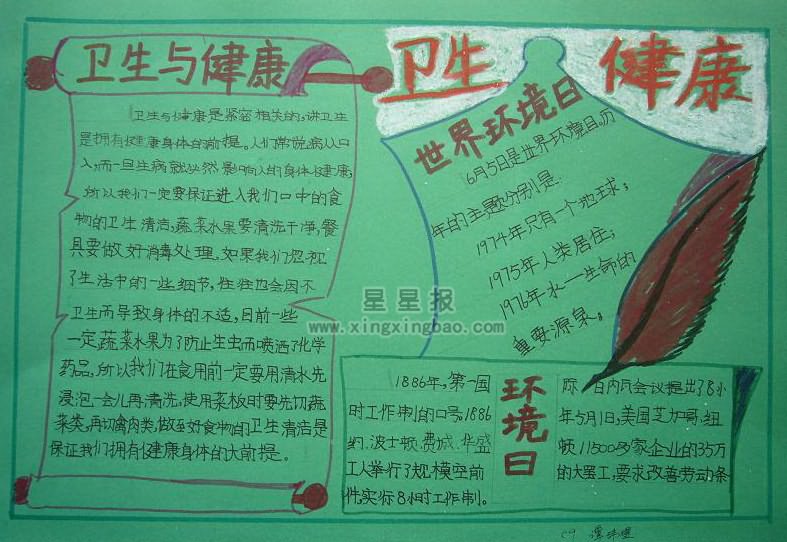 卫生与健康
卫生与健康是紧密相关的,讲卫生
是拥有健康身体的前提。人们常说病从口
入,而一旦生病就必然影响人的身体健康,
所以我们一定要保证进入我们口中的食
物的卫生清洁,蔬菜水果要清洗干净,餐
具要做好消毒处理,如果我们忽视
了生活中的一些细节,往往也会因不
卫生而导致身体的不适,目前一些
一定蔬菜水果为了防止生虫而喷洒了化学
药品,所以我们在食用前一定要用清水先
浸泡一会儿再清洗,使用菜板时要先切蔬
菜类,再切禽肉类,做至好食物的卫生清洁是
保证我们拥有健康身体的大前提。
卫生 健康
世界环境日
6月5日是世界环境日。历
年的主题分别是:
1974年只有一个地球;
1975年人类居住;
1976年水一生命的
重要源泉。
星星报
www.xingxingbao.com
环境日
1886年,第一国
时工作制的口号。1886
约、波士顿、费城、华盛
工人举行了规模空前
件,实行8小时工作制。
际 日内瓦会议提出了8小
年5月1日,美国芝加哥、纽
顿11500多家企业的35万
的大罢工,要求改善劳动条